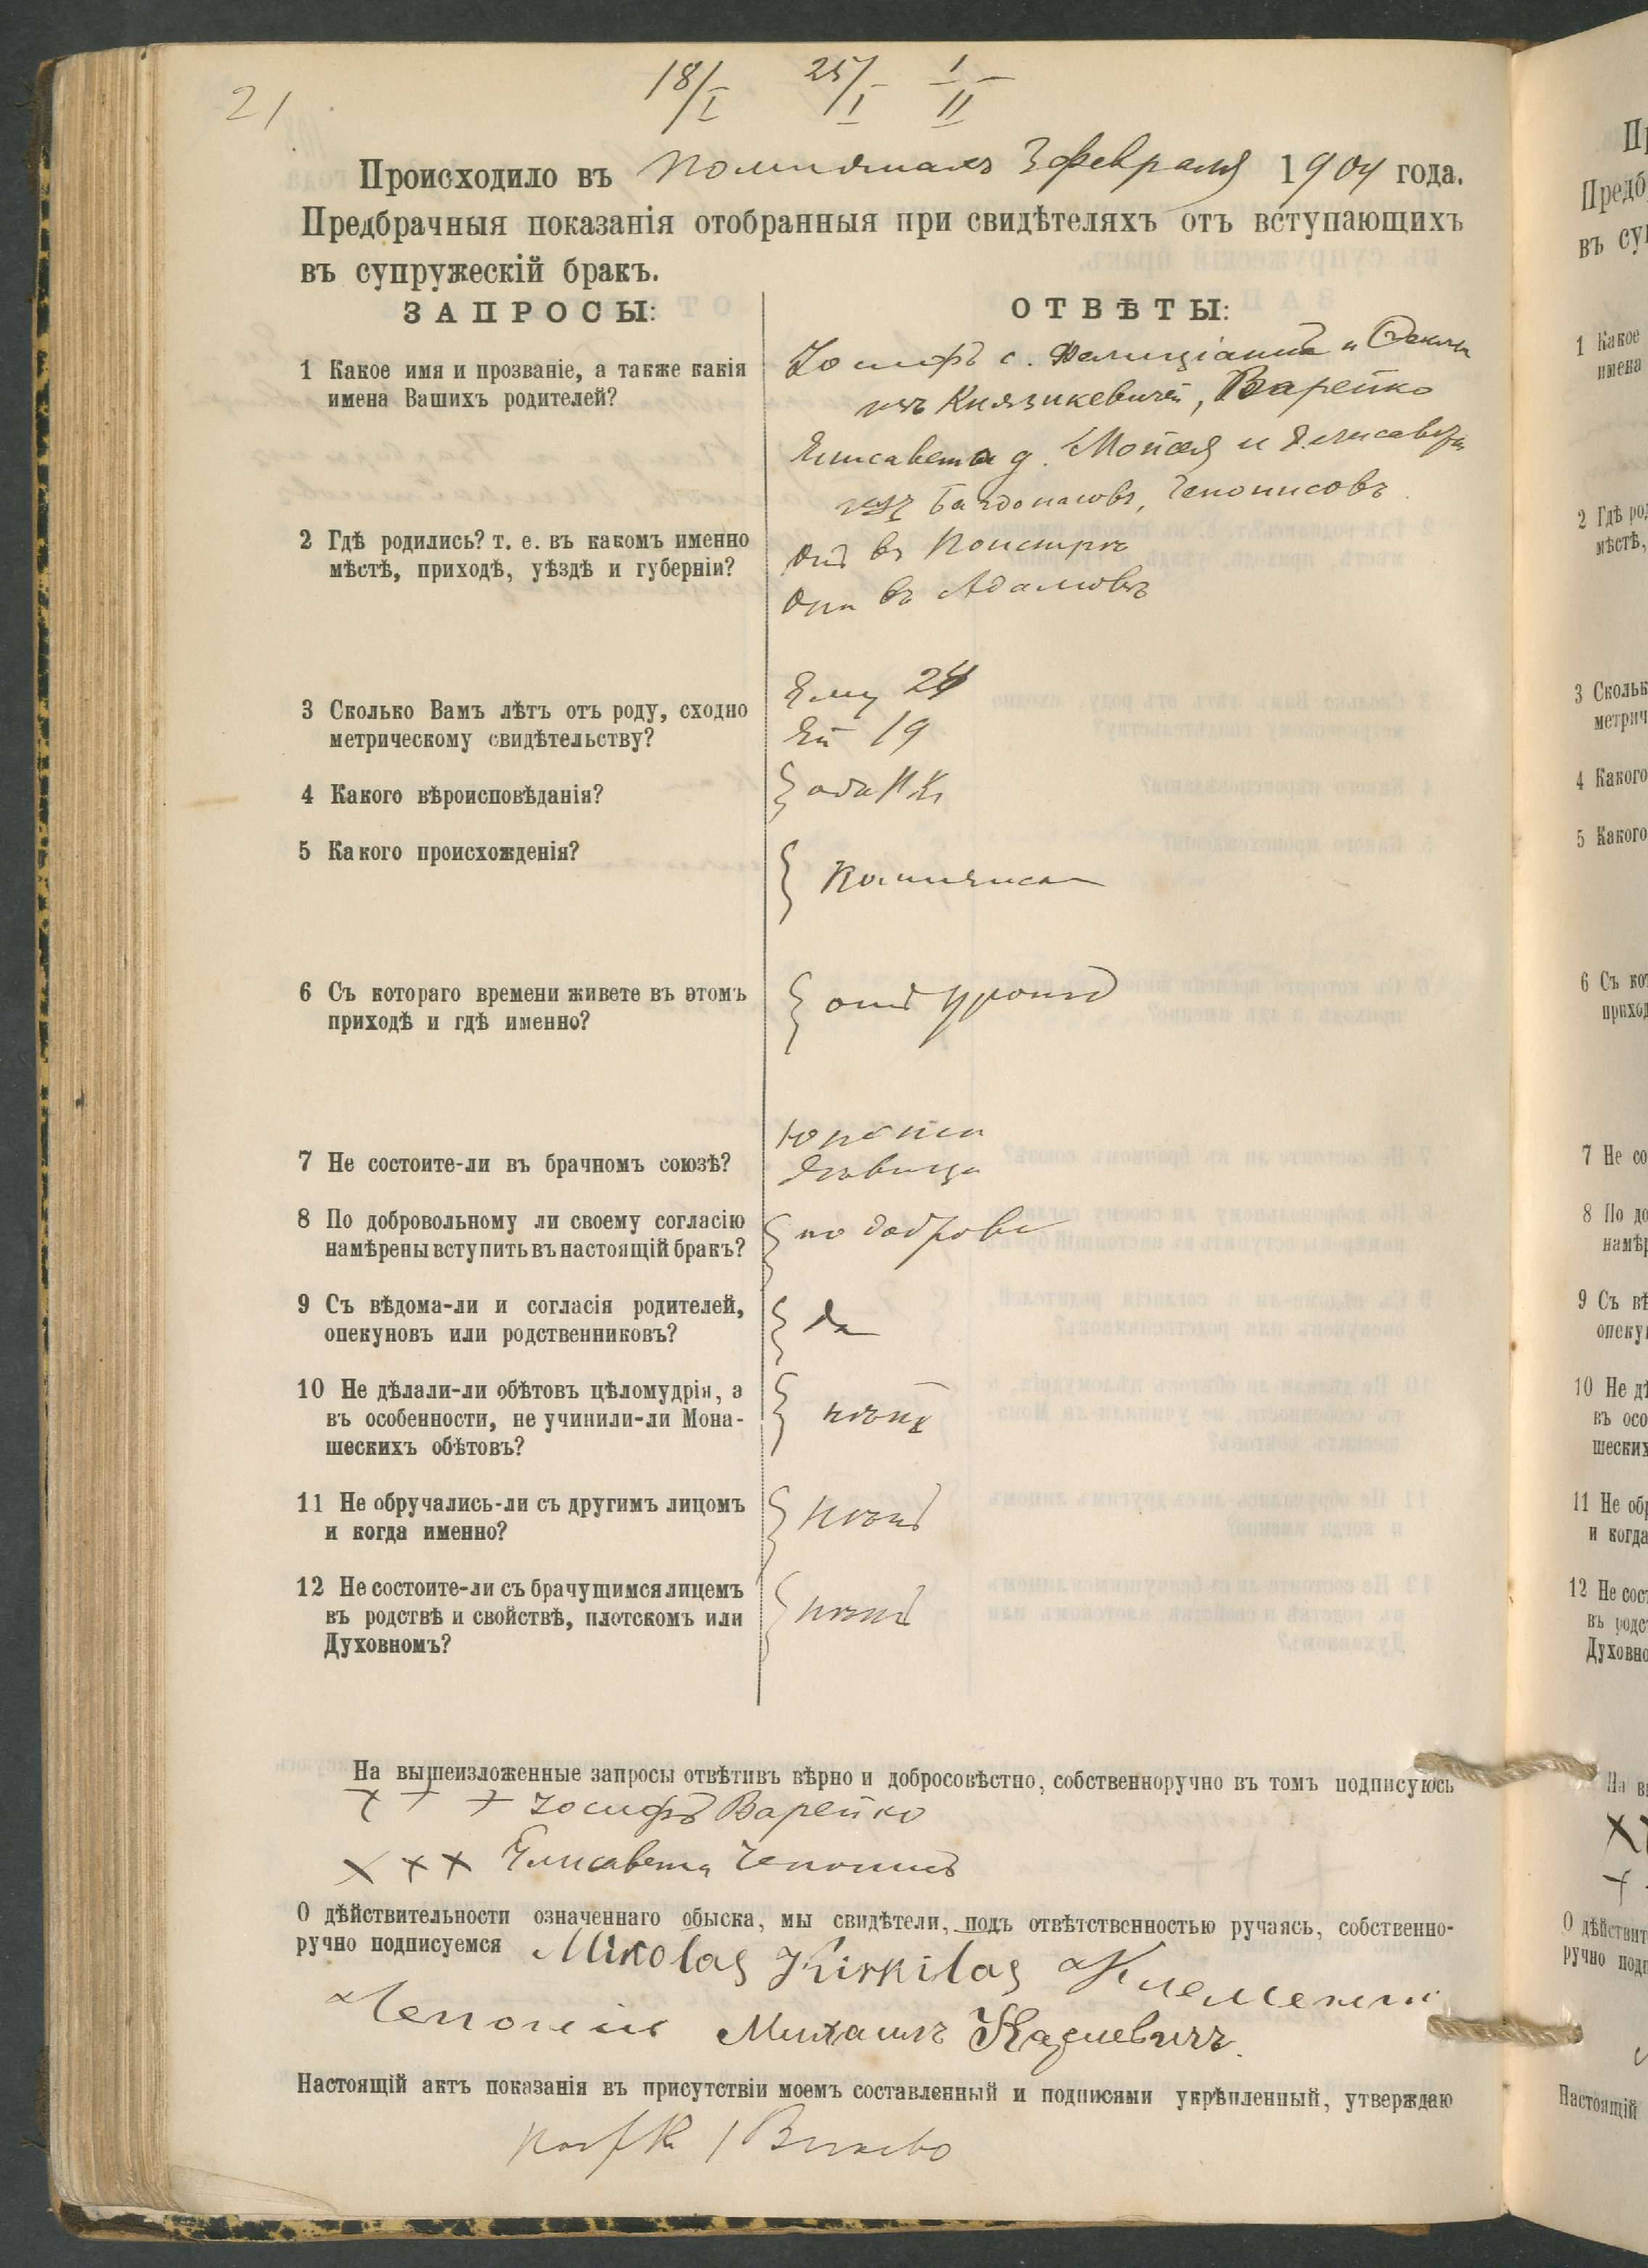 21
18/I 25/I 1/II
Происходило въ 3 февраля 1904 года.
Предбрачныя показанія отобранныя при свидѣтеляхъ отъ вступающихъ
въ супружескій бракъ.
ЗАПРОСЫ:
ОТВѢТЫ:
1 Какое имя и прозваніе, а также какія
имена Вашихъ родителей?
Іосифъ с. Фелиціана и Феклы
изъ Князикевичей, Варейко
Елисавета д. Мойсея и Елисаветы
изъ Чепонисовъ
2 Гдѣ родились? т. е. въ какомъ именно
мѣстѣ, приходѣ, уѣздѣ и губерніи?
Онъ въ
Она въ Адамовѣ
3 Сколько Вамъ лѣтъ отъ роду, сходно
метрическому свидѣтельству?
Ему 24
Ей 19
4 Какого вѣроисповѣданія?
оба Р К
5 Какого происхожденія?
6 Съ котораго времени живете въ этомъ
приходѣ и гдѣ именно?
отъ урожд
7 Не состоите-ли въ брачномъ союзѣ?
юноша
дѣвица
8 По добровольному ли своему согласію
намѣрены вступить въ настоящій бракъ?
по доброво
9 Съ вѣдома-ли и согласія родителей,
опекуновъ или родственниковъ?
да
10 Не дѣлали-ли обѣтовъ цѣломудрія, а
въ особенности, не учинили-ли Мона-
шескихъ обѣтовъ?
нѣтъ
11 Не обручались-ли съ другимъ лицомъ
и когда именно?
нѣтъ
12 Не состоите-ли съ брачущимся лицемъ
въ родствѣ и свойствѣ, плотскомъ или
Духовномъ?
нѣтъ
На вышеизложенные запросы отвѣтивъ вѣрно и добросовѣстно, собственноручно въ томъ подписуюсь
+ + + Іосифъ Варейко
× × × Елисавета Чепонисъ
О дѣйствительности означеннаго обыска, мы свидѣтели, подъ отвѣтственностью ручаясь, собственно-
ручно подписуемся Mikolas Kirkilas Клеменсъ
Чепонисъ Михаилъ Казлевичъ.
Настоящій актъ показанія въ присутствіи моемъ составленный и подписями укрѣпленный, утверждаю